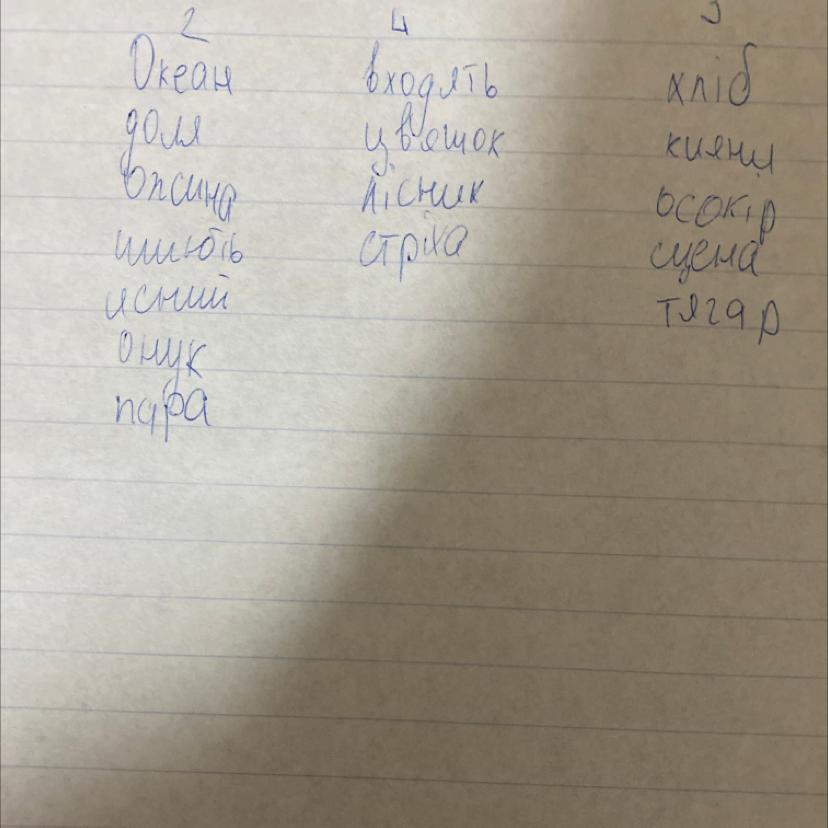 2
Океан
доля
Ожина
ясний
онук
пара
4
входять
цв'яшок
лісник
стріха
хліб
кияни
осокір
сцена
тягар